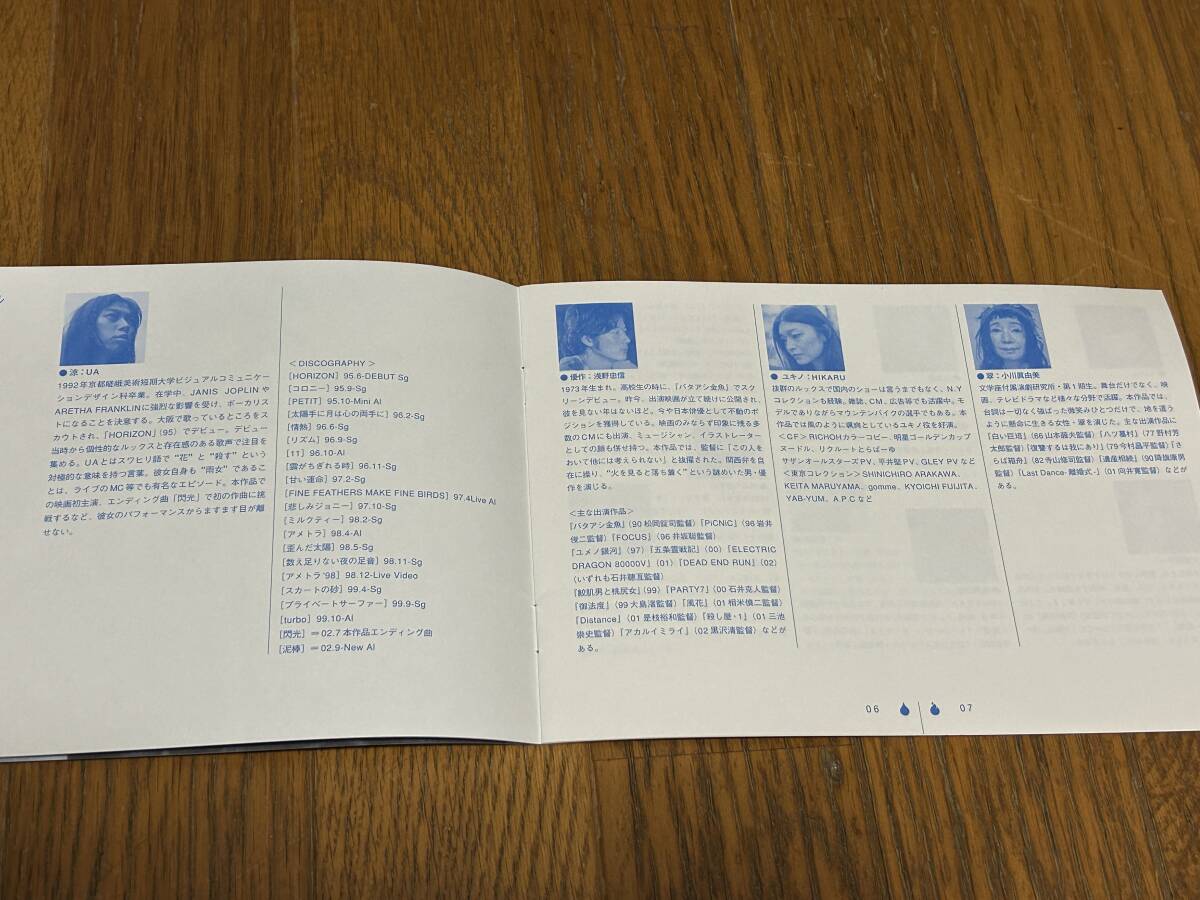 ●涼：UA
1992年京都嵯峨美術短期大学ビジュアルコミュニケー
ションデザイン科卒業。在学中、JANIS JOPLINや
ARETHA FRANKLINに強烈な影響を受け、ボーカリス
トになることを決意する。大阪で歌っているところをス
カウトされ、「HORIZON」(95) でデビュー。デビュー
当時から個性的なルックスと存在感のある歌声で注目を
集める。UAとはスワヒリ語で“花”と“殺す”という
対極的な意味を持つ言葉。彼女自身も“雨女”であるこ
とは、ライブのMC等でも有名なエピソード。本作品で
の映画初主演、エンディング曲「閃光」で初の作曲に挑
戦するなど、彼女のパフォーマンスからますます目が離
せない。
＜DISCOGRAPHY＞
[HORIZON] 95.6-DEBUT Sg
[コロニー] 95.9-Sg
[PETIT] 95.10-Mini Al
[太陽手に月は心の両手に] 96.2-Sg
[情熱] 96.6-Sg
[リズム] 96.9-Sg
[11] 96.10-Al
[雲がちぎれる時] 96.11-Sg
[甘い運命] 97.2-Sg
[FINE FEATHERS MAKE FINE BIRDS] 97.4Live Al
[悲しみジョニー] 97.10-Sg
[ミルクティー] 98.2-Sg
[アメトラ] 98.4-Al
[歪んだ太陽] 98.5-Sg
[数え足りない夜の足音] 98.11-Sg
[アメトラ'98] 98.12-Live Video
[スカートの砂] 99.4-Sg
[プライベートサーファー] 99.9-Sg
[turbo] 99.10-Al
[閃光] ＝02.7本作品エンディング曲
[泥棒] ＝02.9-New Al
●優作：浅野忠信
1973年生まれ。高校生の時に、「バタアシ金魚」でスク
リーンデビュー。昨今、出演映画が立て続けに公開され、
彼を見ない年はないほど。今や日本俳優として不動のポ
ジションを獲得している。映画のみならず印象に残る多
数のCMにも出演、ミュージシャン、イラストレーター
としての顔も併せ持つ。本作品では、監督に「この人を
おいて他には考えられない」と抜擢された。関西弁を自
在に操り、“火を見ると落ち着く”という謎めいた男・優
作を演じる。
＜主な出演作品＞
『バタアシ金魚』(90 松岡錠司監督)『PiCNiC』(96 岩井
俊二監督)『FOCUS』(96 井坂聡監督)
『ユメノ銀河』(97)『五条霊戦記』(00)『ELECTRIC
DRAGON 80000V』(01)『DEAD END RUN』(02)
(いずれも石井聰亙監督)
『鮫肌男と桃尻女』(99)『PARTY7』(00 石井克人監督)
『御法度』(99 大島渚監督)『風花』(01 相米慎二監督)
『Distance』(01 是枝裕和監督)『殺し屋・1』(01 三池
崇史監督)『アカルイミライ』(02 黒沢清監督) などが
ある。
●ユキノ：HIKARU
抜群のルックスで国内のショーは言うまでもなく、N.Y
コレクションも経験。雑誌、CM、広告等でも活躍中。モ
デルでありながらマウンテンバイクの選手でもある。本
作品では風のように颯爽としているユキノ役を好演。
＜CF＞RICHOHカラーコピー、明星ゴールデンカップ
ヌードル、リクルートとらばーゆ
サザンオールスターズPV、平井堅PV、GLEY PVなど
＜東京コレクション＞SHINICHIRO ARAKAWA、
KEITA MARUYAMA、gomme、KYOICHI FUIJITA、
YAB-YUM、A.P.Cなど
●翠：小川眞由美
文学座付属演劇研究所・第1期生。舞台だけでなく、映
画、テレビドラマなど様々な分野で活躍。本作品では、
台詞は一切なく強ばった微笑みひとつだけで、地を這う
ように懸命に生きる女性・翠を演じた。主な出演作品に
『白い巨塔』(66 山本薩夫監督)『八ツ墓村』(77 野村芳
太郎監督)『復讐するは我にあり』(79 今村昌平監督)『さ
らば箱舟』(82 寺山修司監督)『遺産相続』(90 降旗康男
監督)『Last Dance-離婚式-』(01 向井寛監督) などが
ある。
06 07